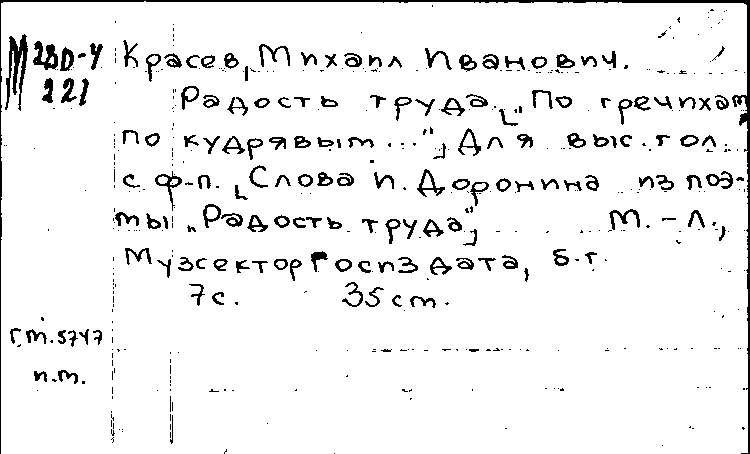 М 280-4
221
Красев, Михаил Иванович.
Радость труда. ["По гречихам
по кудрявым..."] Для выс. гол.
с ф-п. [Слова И. Доронина из поэ-
мы "Радость труда"] М. - Л.,
Музсектор Госиздата, б. г.
7 с. 35 см.
г.т. 5747
п.т.